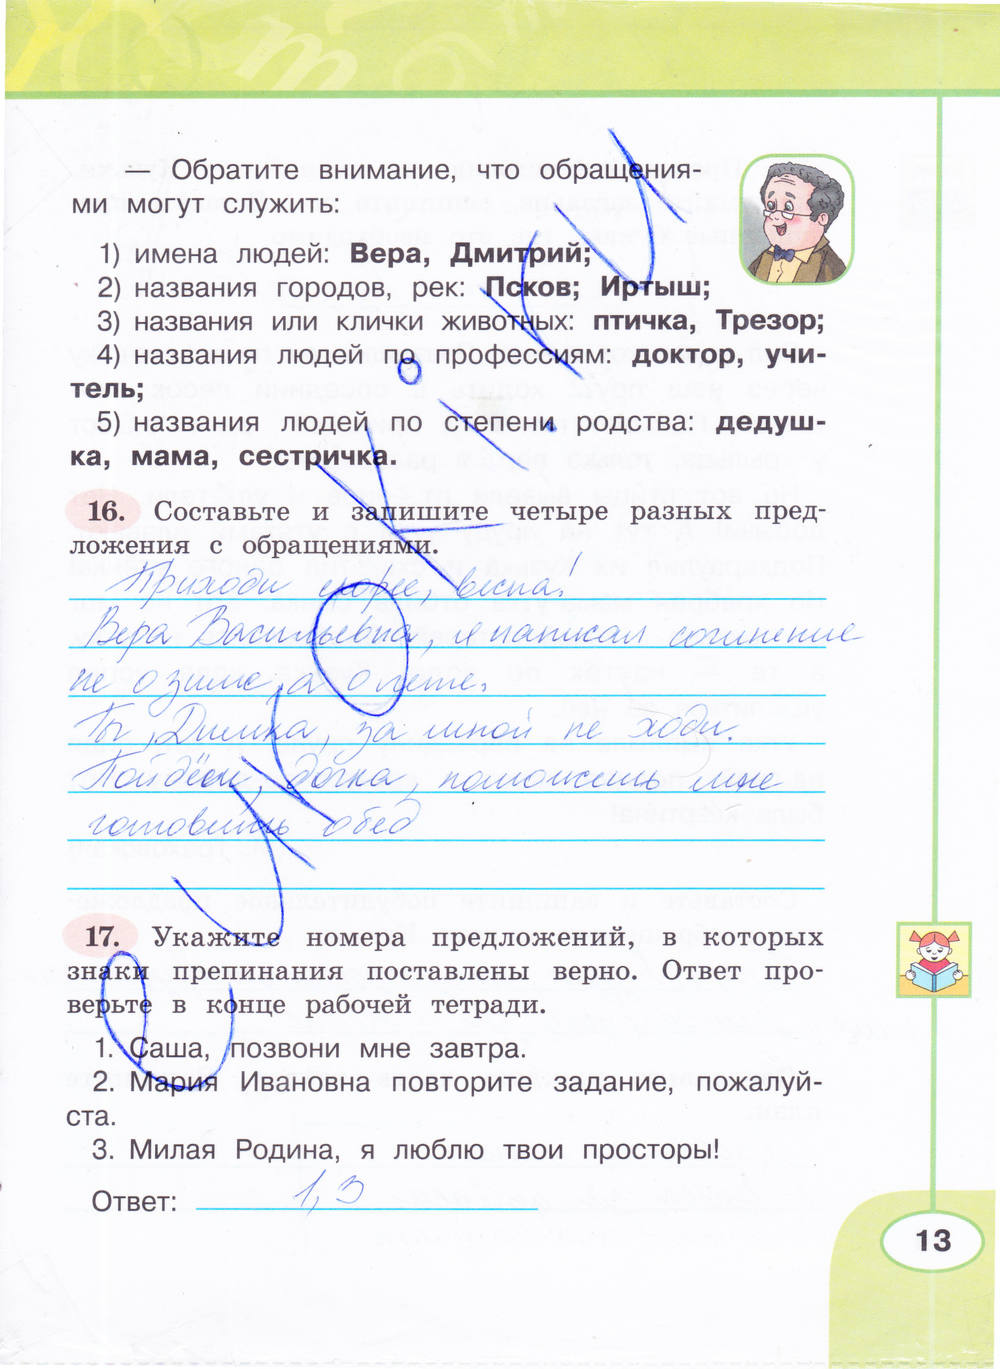 — Обратите внимание, что обращения-
ми могут служить:
1) имена людей: Вера, Дмитрий;
2) названия городов, рек: Псков; Иртыш;
3) названия или клички животных: птичка, Трезор;
4) названия людей по профессиям: доктор, учи-
тель;
5) названия людей по степени родства: дедуш-
ка, мама, сестричка.
16. Составьте и запишите четыре разных пред-
ложения с обращениями.
Приходи скорее, весна!
Вера Васильевна, я написал сочинение
не о зиме, а о лете.
Ты, Димка, за мной не ходи.
Пойдём, дочка, поможешь мне
готовить обед
17. Укажите номера предложений, в которых
знаки препинания поставлены верно. Ответ про-
верьте в конце рабочей тетради.
1. Саша, позвони мне завтра.
2. Мария Ивановна повторите задание, пожалуй-
ста.
3. Милая Родина, я люблю твои просторы!
Ответ: 1, 3
13